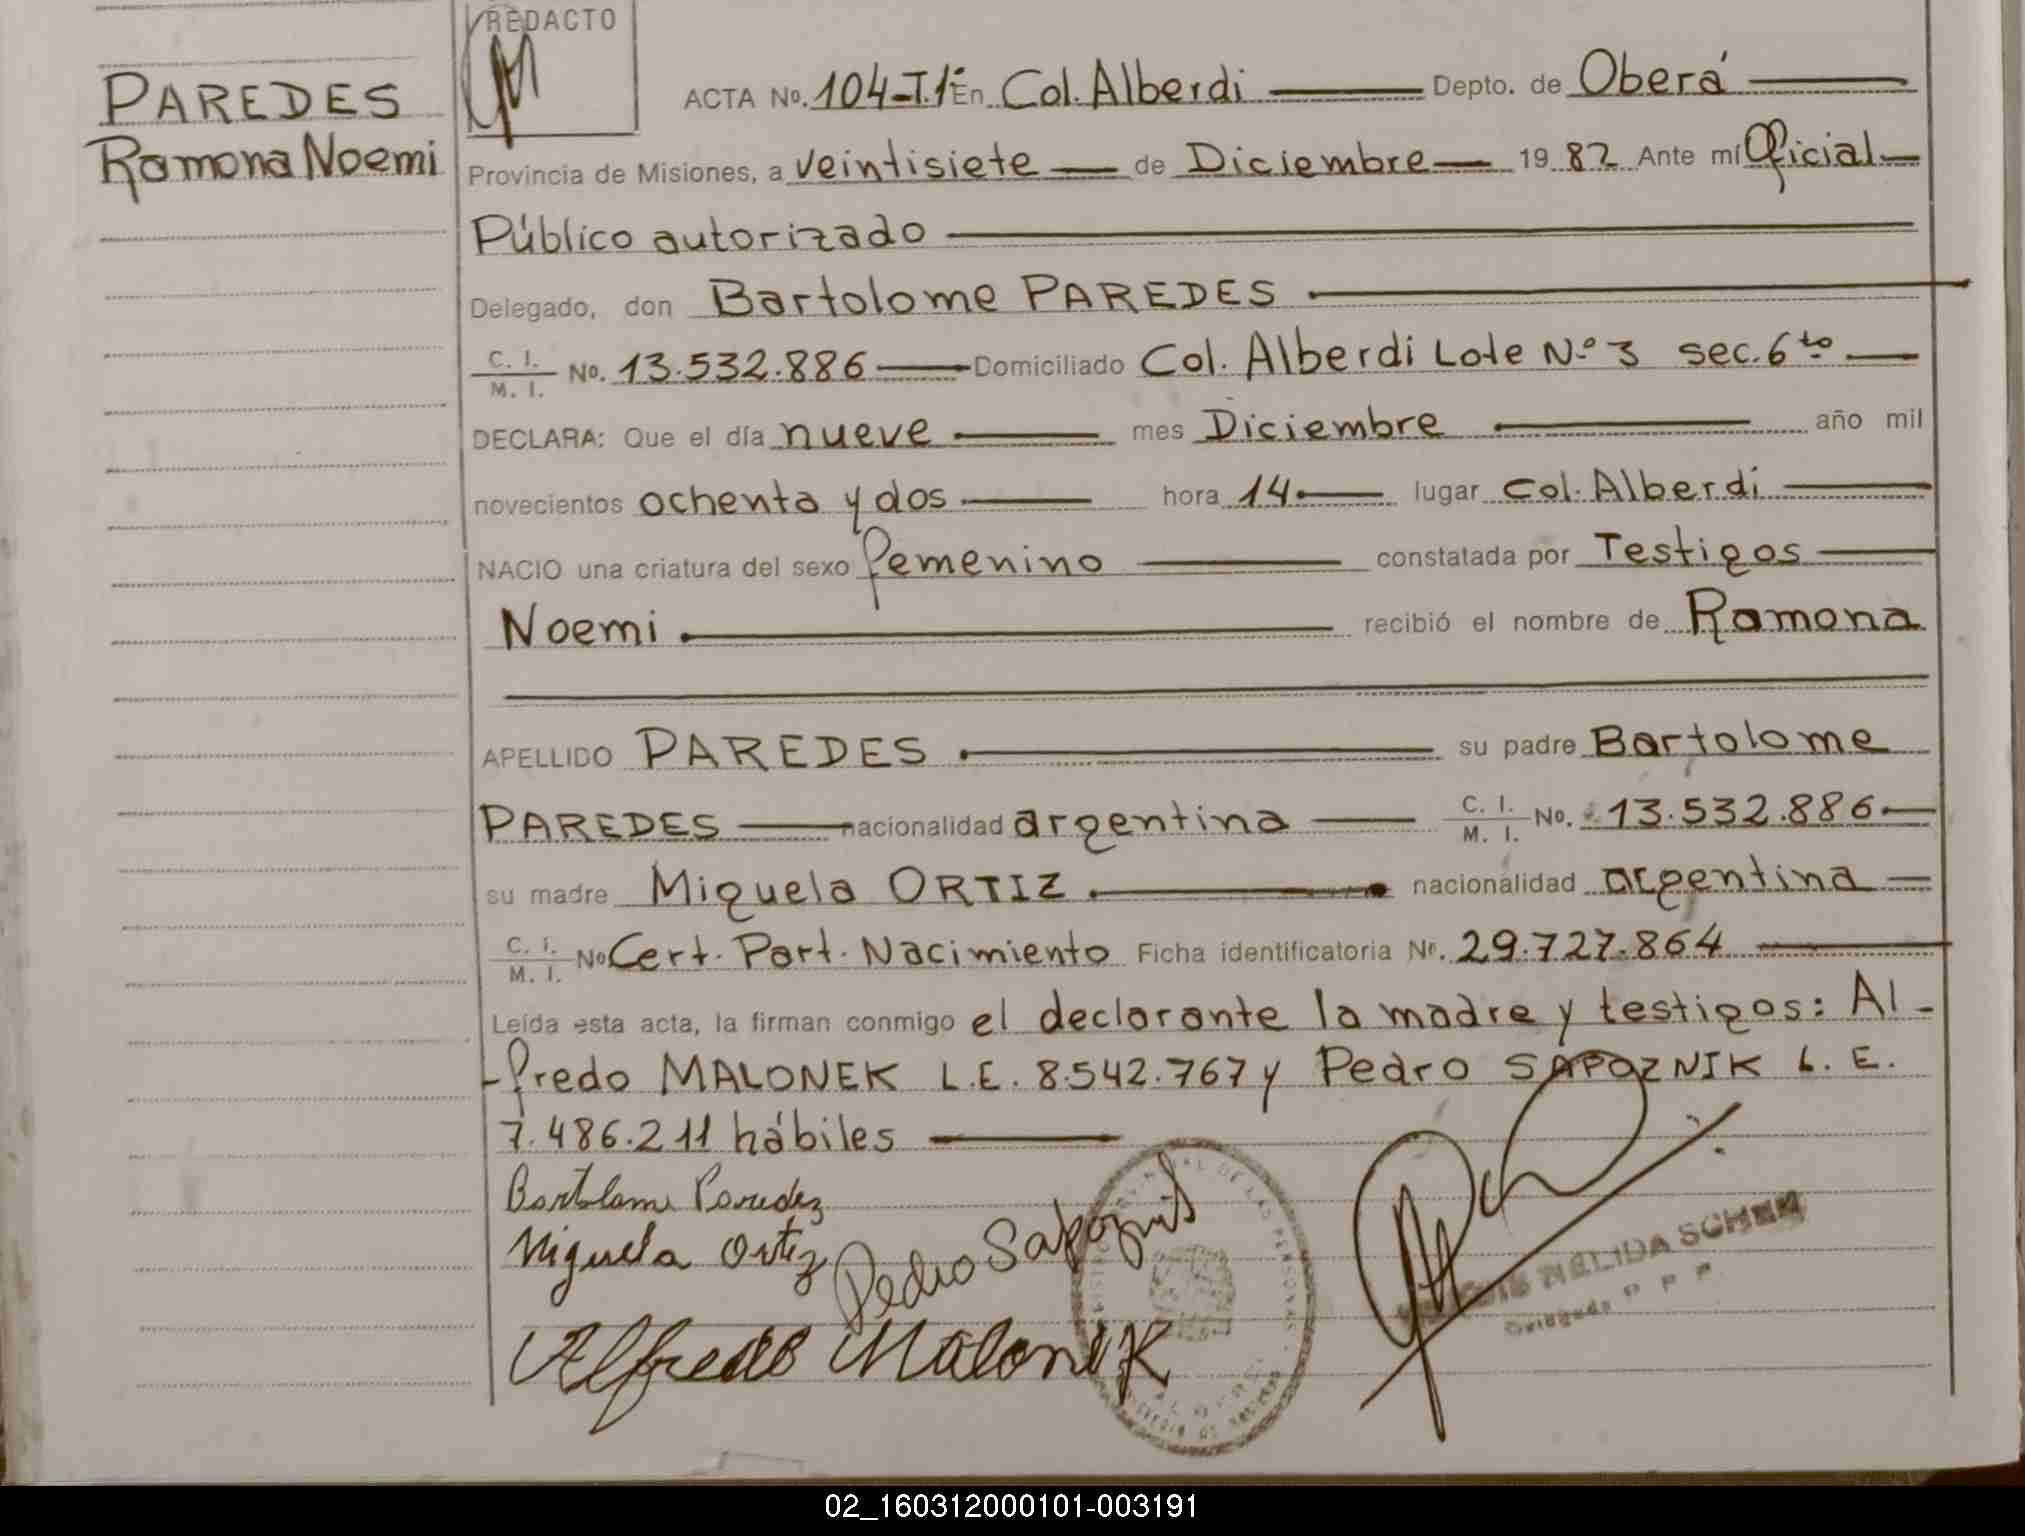 REDACTO
PAREDES
Ramona Noemi
ACTA No. 104-T.1º En Col. Alberdi Depto. de Oberá
Provincia de Misiones, a veintisiete de Diciembre 19 82 Ante mí Oficial
Público autorizado
Delegado, don Bartolome PAREDES
C. I. / M. I. No. 13.532.886 Domiciliado Col. Alberdi Lote Nº 3 sec. 6to
DECLARA: Que el día nueve mes Diciembre año mil
novecientos ochenta y dos hora 14 lugar Col. Alberdi
NACIO una criatura del sexo femenino constatada por Testigos
Noemi recibió el nombre de Ramona
APELLIDO PAREDES su padre Bartolome
PAREDES nacionalidad argentina C. I. / M. I. No. 13.532.886
su madre Miguela ORTIZ nacionalidad argentina
C. I. / M. I. No Cert. Part. Nacimiento Ficha identificatoria Nº. 29.727.864
Leída esta acta, la firman conmigo el declarante la madre y testigos: Al-
-fredo MALONEK L.E. 8.542.767 y Pedro SAPOZNIK L.E.
7.486.211 hábiles
Bartolome Paredez
Miguela Ortiz
Pedro Sapoznik
Alfredo Malonek
NELIDA
Delegada
02_160312000101-003191